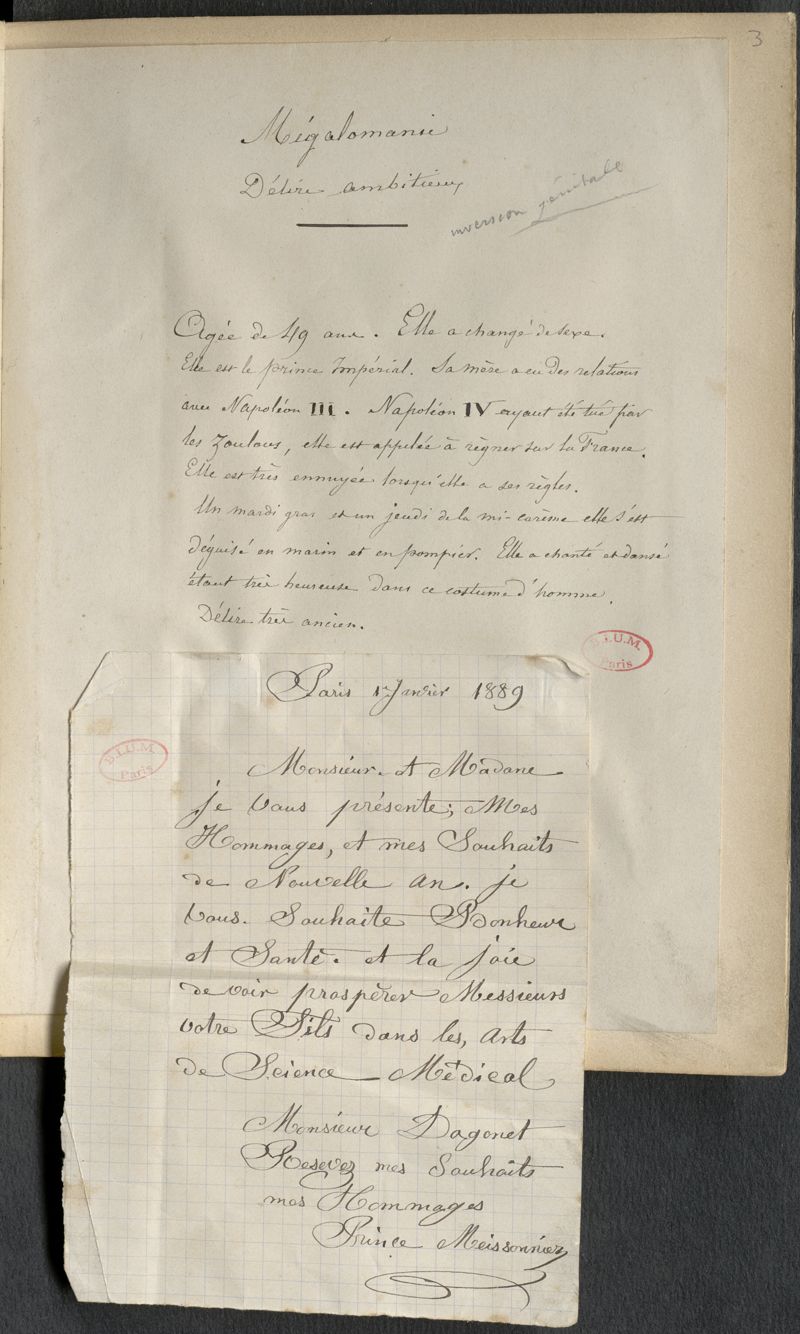 3
Mégalomanie
Délire ambitieux
inversion génitale
Agée de 49 ans. Elle a changé de sexe.
Elle est le prince Impérial. Sa mère a eu des relations
avec Napoléon III. Napoléon IV ayant été tué par
les Zoulous, elle est appelée à règner sur la France.
Elle est très ennuyée lorsqu'elle a ses règles.
Un mardi gras et un jeudi de la mi-carême elle s'est
déguisé en marin et en pompier. Elle a chanté et dansé
étant très heureuse dans ce costume d'homme.
Délire très ancien.
B.I.U.M.
Paris
Paris 1er Janvier 1889
B.I.U.M.
Paris
Monsieur et Madane
je vous présente; Mes
Hommages, et mes Souhaits
de Nouvelle an. je
vous. Souhaite Bonheur
et Santè. et la joie
de voir prospèrer Messieurs
votre Fils dans les, arts
de Science Mèdical
Monsieur Dagonet
Resevez mes Souhaits
mes Hommages
Prince Meissonnier